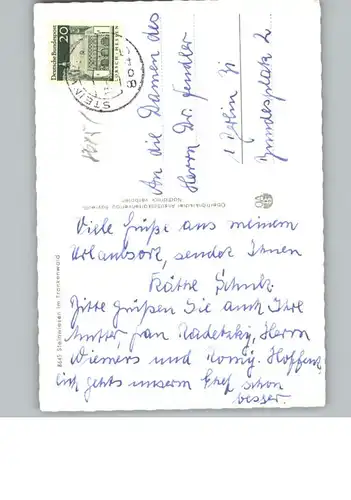 Deutsche Bundespost
20
LORSCH/HESSEN
8641
An die Damen des
Herrn Dr. Fendler
1 Berlin 31
Bundesplatz 2
8641 Steinwiesen im Frankenwald
Nachdruck verboten
Viele Grüße aus meinem
Urlaubsort, sendet Ihnen
Käthe Schulz.
Bitte grüßen Sie auch Ihre
Mutter, Frau Radetzky, Herrn
Wiemers und König. Hoffent-
lich gehts unserm Chef schon
besser.